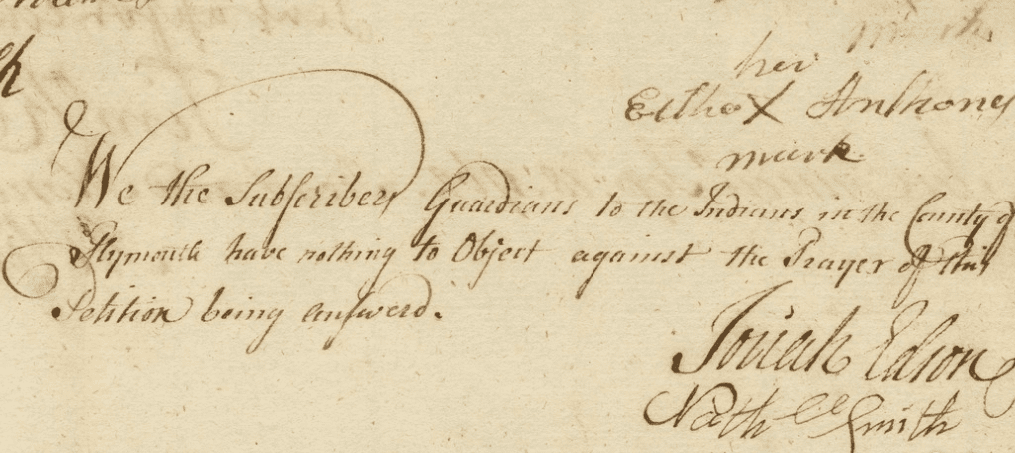 her
Esther X Anthoney
mark
We the Subscribers Guardians to the Indians in the County of
Plymouth have nothing to Object against the Prayer of this
Petition being answerd.
Josiah Edson
Nathll Smith